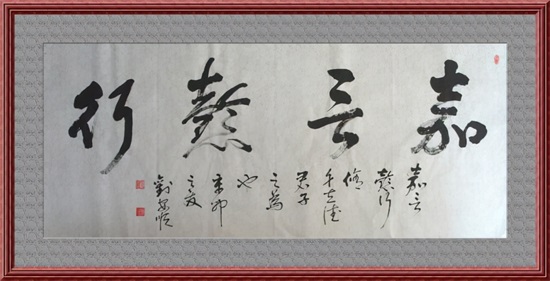 嘉言懿行
嘉言
懿行
修
立德
君子
之為
也
辛卯
之
劉